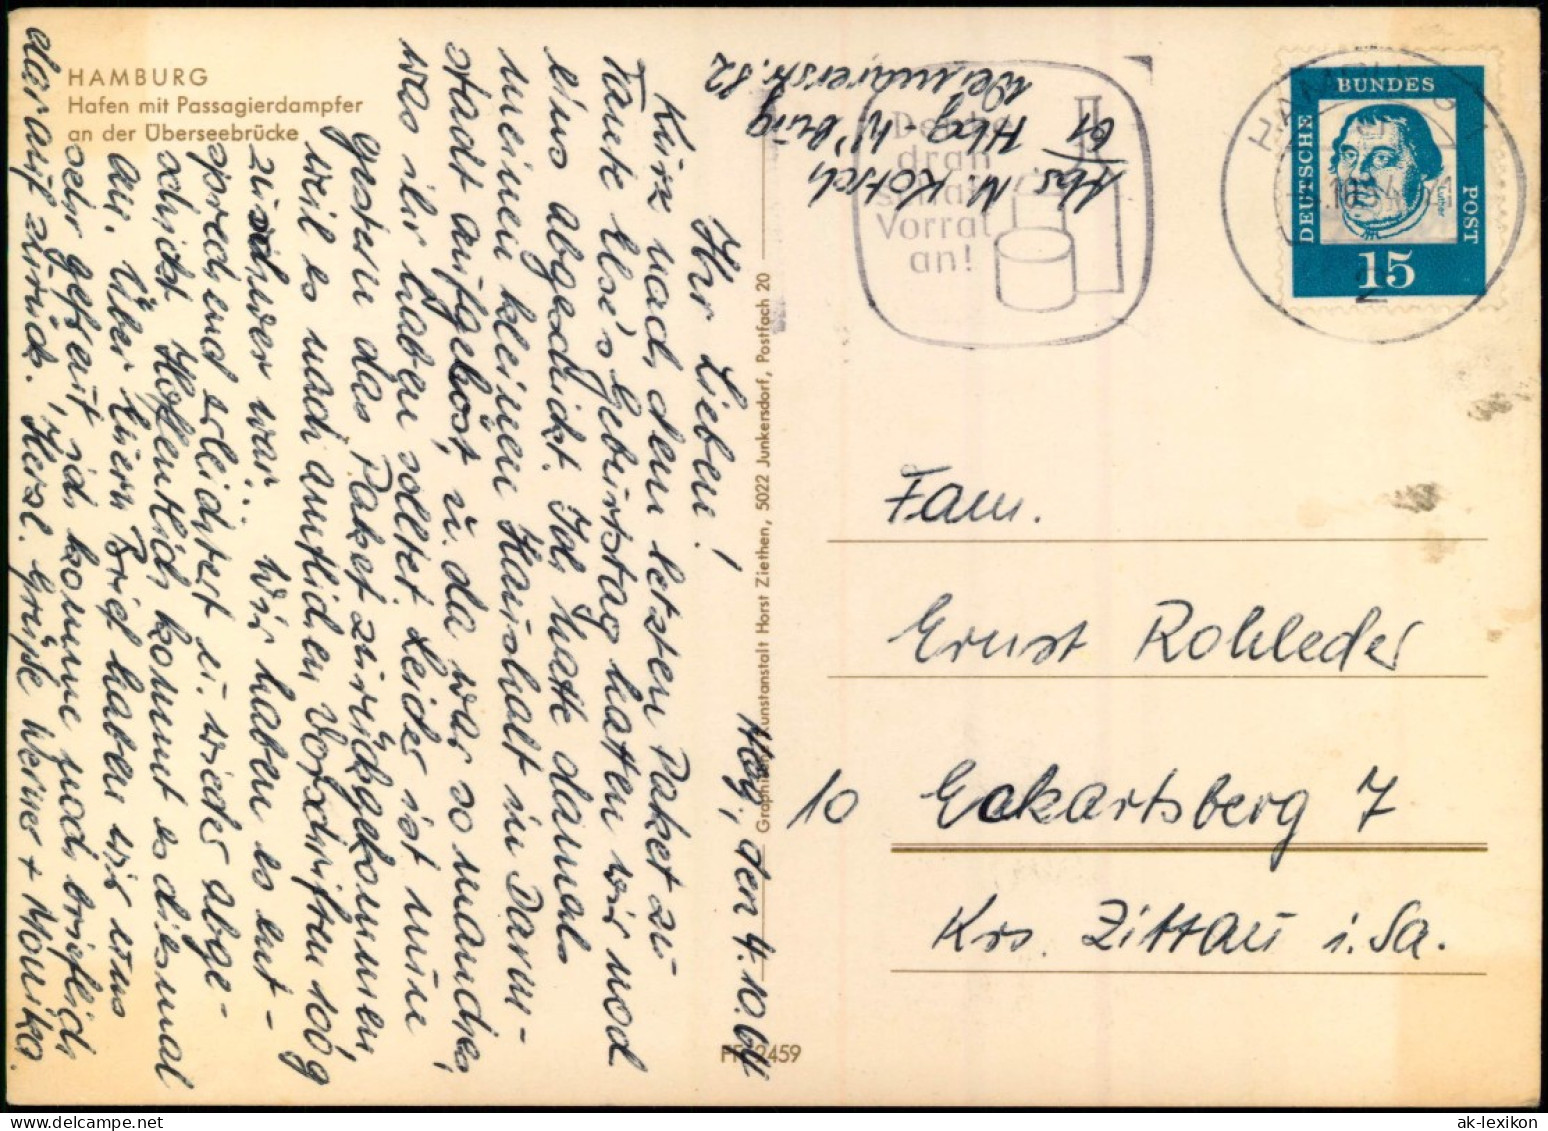 HAMBURG
Hafen mit Passagierdampfer
an der Überseebrücke
Abs M. Kotsch
61
Hbg-N'burg
Weimarerstr. 82
Hbg, den 4.10.64
Ihr Lieben!
Kurz nach dem letzten Paket zu
Tante Else's Geburtstag hatten wir noch
eins abgeschickt. Ich hatte damals
meinen kleinen Haushalt in Darm-
stadt aufgelöst, u. da war so manches,
was ihr haben solltet. Leider ist nun
gestern das Paket zurückgekommen,
weil es nach amtlichen Vorschriften 100 g
zu schwer war. Wir haben es ent-
sprechend erleichtert u. wieder abge-
schickt. Hoffentlich kommt es diesmal
an. Über Euern Brief haben wir uns
sehr gefreut, ich komme noch brieflich
darauf zurück. Herzl. Grüße Werner + Monika
Graphische Kunstanstalt Horst Ziethen, 5022 Junkersdorf, Postfach 20
2459
Denke
dran
schaff
Vorrat
an!
HAMBURG 1
DEUTSCHE
BUNDES
POST
Luther
15
Fam.
Ernst Rohleder
10 Eckartsberg 7
Krs. Zittau i. Sa.
ak-lexikon.com